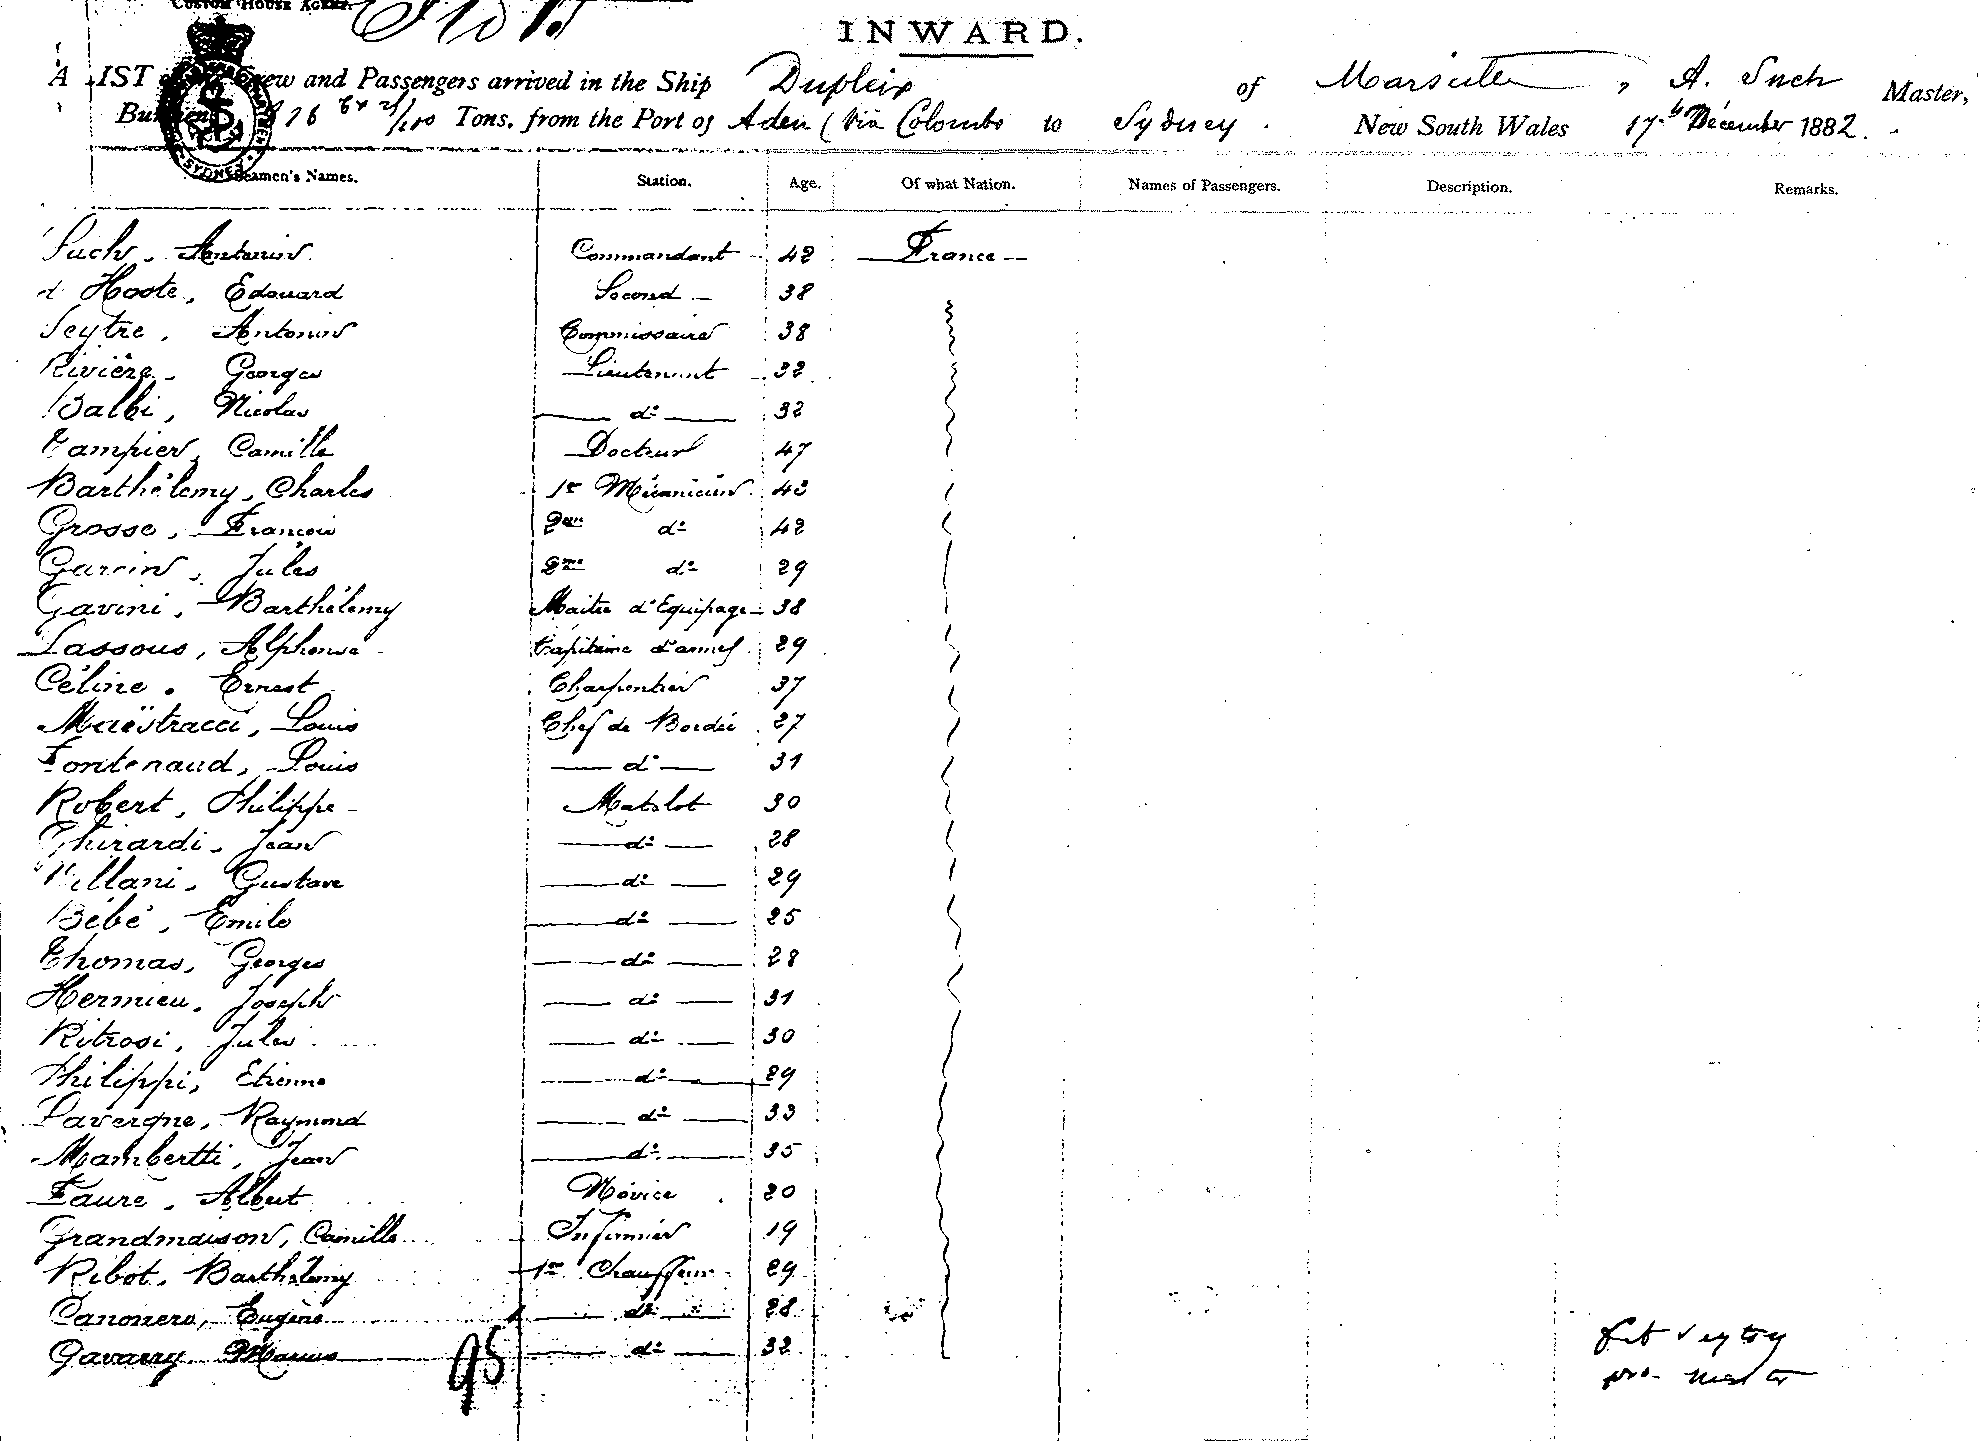 CUSTOM HOUSE AGENT.
INWARD.
A LIST Crew and Passengers arrived in the Ship Dupleix of Marseille, A. Such Master,
Tons, from the Port of Aden (via Colombo to Sydney. New South Wales 17th Décember 1882.
Seamen's Names. Station. Age. Of what Nation. Names of Passengers. Description. Remarks.
Such, Antonin Commandant 42 France
d'Hoste, Edouard Second 38
Seytre, Antonin Commissaire 38
Rivière, Georges Lieutenant 32
Balbi, Nicolas do 32
Tampier, Camille Docteur 47
Barthélemy, Charles 1er Mécanicien 43
Grosse, François 2me do 42
Garcin, Jules 2me do 29
Gavini, Barthélemy Maitre d'Equipage 38
Lassous, Alphonse Capitaine d'armes 29
Céline, Ernest Charpentier 37
Maëstracci, Louis Chef de Bordée 27
Fontenaud, Louis do 31
Robert, Philippe Matelot 30
Ghirardi, Jean do 28
Villani, Gustave do 29
Bébé, Emile do 25
Thomas, Georges do 28
Hermieu, Joseph do 31
Ritrosi, Jules do 30
Philippi, Etienne do 29
Lavergne, Raymond do 33
Mambertti, Jean do 35
Faure, Albert Novice 20
Grandmaison, Camille Infirmier 19
Ribot, Barthélemy 1er Chauffeur 29
Canonero, Eugène do 28
Gavarry, Marius do 32
95